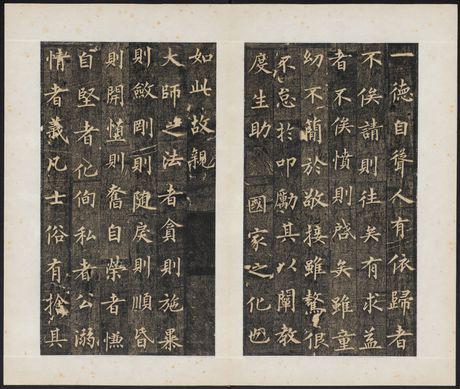 一德自聲人有依歸者
不俟請則往矣有求益
者不俟憤則啓矣雖童
幼不簡於敬接雖驁佷
不怠於叩勵其以闡教
度生助 國家之化也
如此故親
大師之法者貪則施暴
則斂剛則隨戾則順昏
則開憜則奮自榮者慊
自堅者化徇私者公溺
情者義凡士俗有捨其